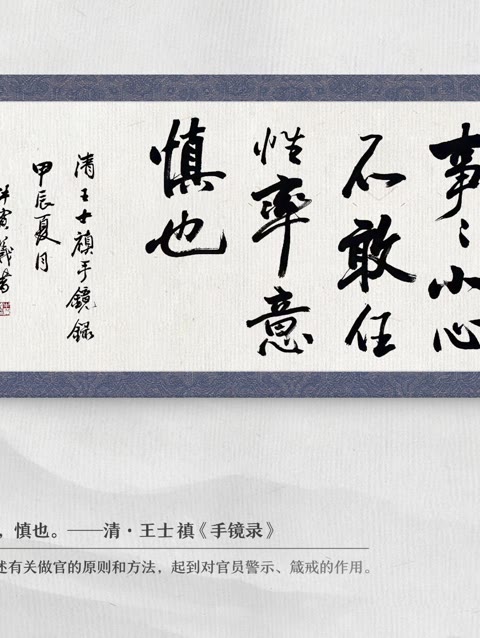 事〻小心
不敢任
性率意
慎也
清王士禛手镜録
甲辰夏月
，慎也。——清·王士禛《手镜录》
述有关做官的原则和方法，起到对官员警示、箴戒的作用。